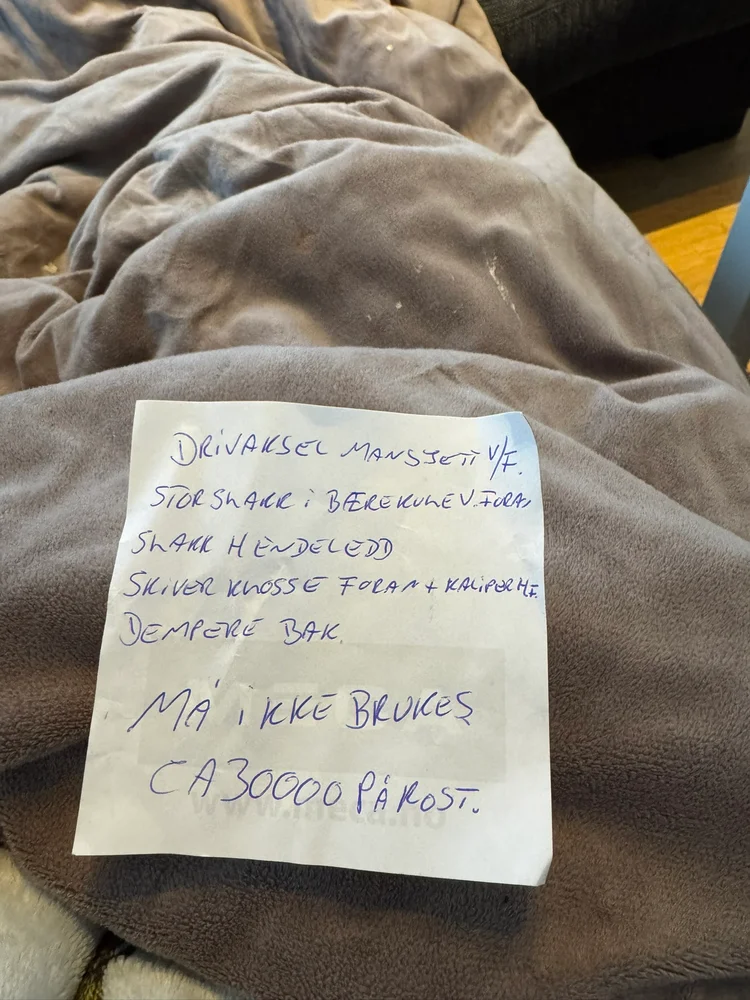 DRIVAKSEL MANSJETT V/F.
STOR SLAKK i BÆREKULE V.FORAN
SLAKK HENDELEDD
SKIVER KLOSSE FORAN + KALIPER HF.
DEMPERE BAK.
MÅ IKKE BRUKES
CA 30000 PÅ KOST.